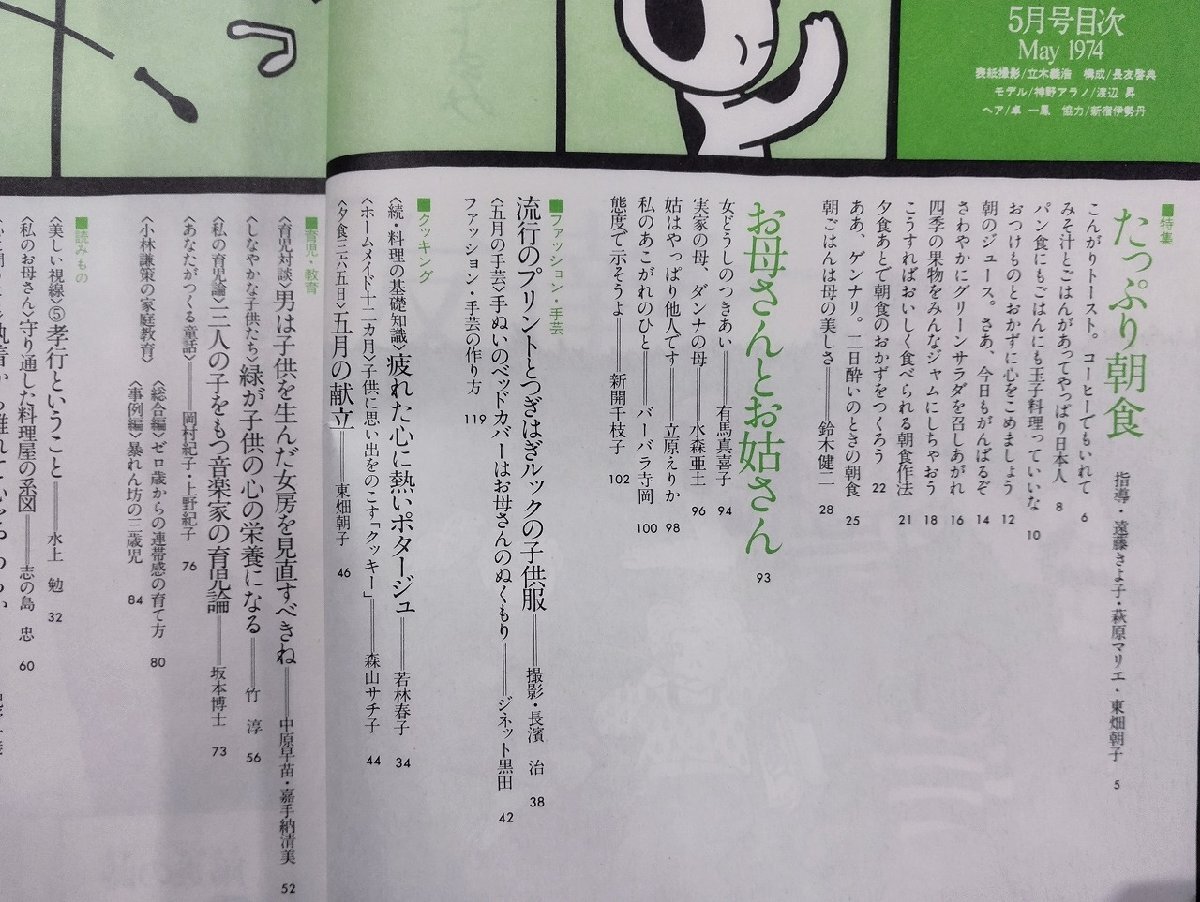 5月号目次
May 1974
表紙撮影/立木義浩 構成/長友啓典
モデル/神野アラノ/渡辺 昇
ヘア/卓 一鳳 協力/新宿伊勢丹
■特集
たっぷり朝食
指導・遠藤さよ子・萩原マリエ・東畑朝子 5
こんがりトースト。コーヒーでもいれて 6
みそ汁とごはんがあってやっぱり日本人 8
パン食にもごはんにも玉子料理っていいな 10
おつけものとおかずに心をこめましょう 12
朝のジュース。さあ、今日もがんばるぞ 14
さわやかにグリーンサラダを召しあがれ 16
四季の果物をみんなジャムにしちゃおう 18
こうすればおいしく食べられる朝食作法 21
夕食あとで朝食のおかずをつくろう 22
ああ、ゲンナリ。二日酔いのときの朝食 25
朝ごはんは母の美しさ――鈴木健二 28
お母さんとお姑さん 93
女どうしのつきあい――有馬真喜子 94
実家の母、ダンナの母――水森亜土 96
姑はやっぱり他人です――立原えりか 98
私のあこがれのひと――バーバラ寺岡 100
態度で示そうよ――新開千枝子 102
■ファッション・手芸
流行のプリントとつぎはぎルックの子供服――撮影・長濱 治 38
〈五月の手芸〉手ぬいのベッドカバーはお母さんのぬくもり――ジネット黒田 42
ファッション・手芸の作り方 119
■クッキング
〈続・料理の基礎知識〉疲れた心に熱いポタージュ――若林春子 34
〈ホームメイド十二カ月〉子供に思い出をのこす「クッキー」――森山サチ子 44
〈夕食三六五日〉五月の献立――東畑朝子 46
■育児・教育
〈育児対談〉男は子供を生んだ女房を見直すべきね――中原早苗・嘉手納清美 52
〈しなやかな子供たち〉緑が子供の心の栄養になる――竹 淳 56
〈私の育児論〉三人の子をもつ音楽家の育児論――坂本博士 73
〈あなたがつくる童話〉――岡村紀子・上野紀子 76
〈小林謙策の家庭教育〉
〈総合編〉ゼロ歳からの連帯感の育て方 80
〈事例編〉暴れん坊の二歳児 84
■読みもの
〈美しい視線⑤〉孝行ということ――水上 勉 32
〈私のお母さん〉守り通した料理屋の系図――志の島 忠 60